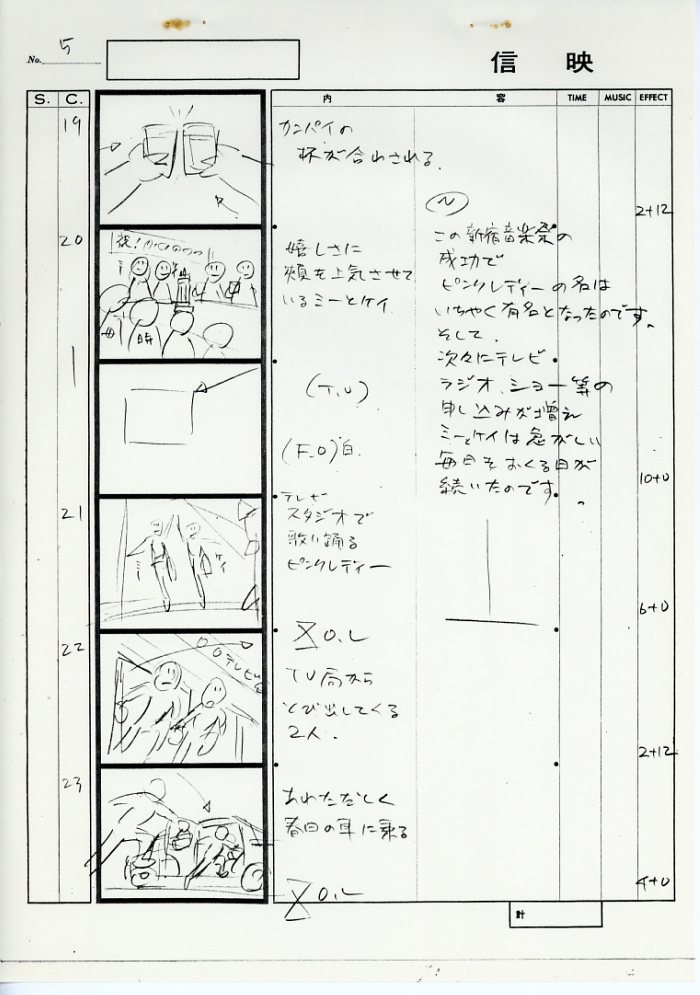 No. 5
信 映
S. C. 内 容 TIME MUSIC EFFECT
19
カンパイの
杯が合わされる.
2+12
N
この新宿音楽祭の
成功で
ピンクレディーの名は
いちやく有名となったのです。
そして.
次々にテレビ・
ラジオ、ショー等の
申し込みが増え
ミーとケイは急がしい
毎日をおくる日が
続いたのです。
20
祝!
嬉しさに
頬を上気させて
いるミーとケイ
(T.U)
(F.O)白.
10+0
21
テレビ
スタジオで
歌い踊る
ピンクレディー
ミー
ケイ
6+0
O.L
22
○○テレビ
TV局から
とび出してくる
2人.
2+12
23
あわただしく
春日の車に乗る
O.L
4+0
計